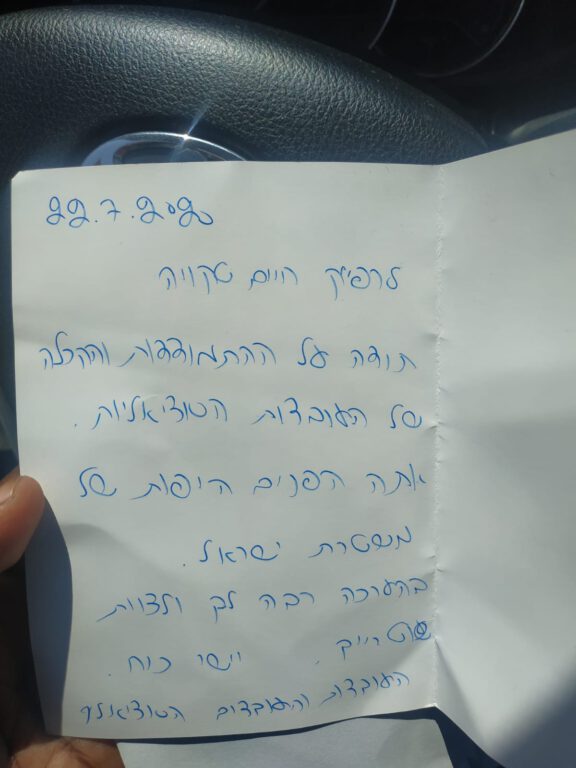 22.7.2020
לרפיק חיים
תודה על ההתמודדות וההכלה
של העובדות הסוציאליות.
אתה הפנים היפות של
משטרת ישראל.
בהערכה רבה לך ולצוות
. ויישר כוח.
העובדות והעובדים